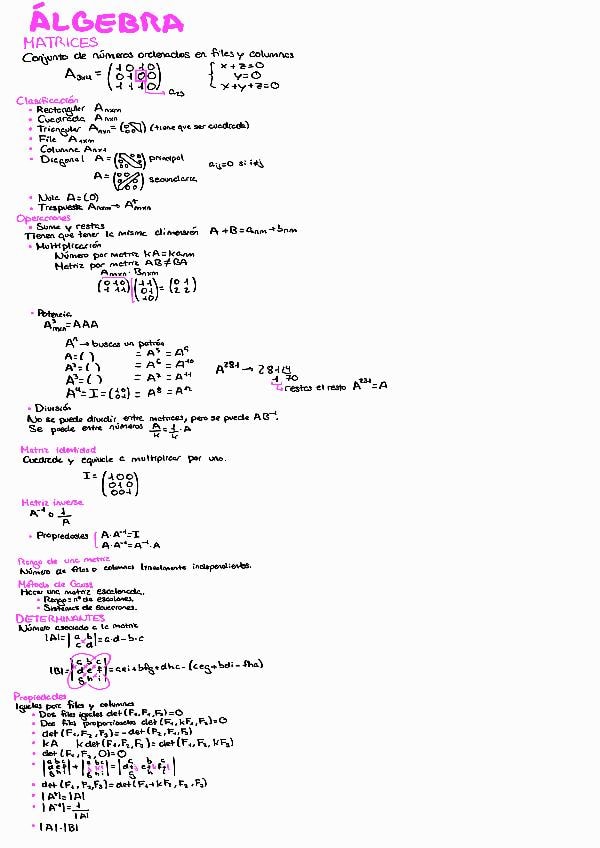 ÁLGEBRA
MATRICES
Conjunto de números ordenados en filas y columnas
A₃ₓ₄ = (1 0 1 0 / 0 1 0 0 / 1 1 1 0) { x+z=0 / y=0 / x+y+z=0
a₂₃
Clasificación
• Rectangular Aₙₓₘ
• Cuadrada Aₙₓₙ
• Triangular Aₙₓₙ = (tiene que ser cuadrada)
• Fila A₁ₓₙ
• Columna Aₙₓ₁
• Diagonal A = principal aᵢⱼ=0 si i≠j
A = secundaria
• Nula A=(0)
• Traspuesta Aₙₓₘ → Aᵗₘₓₙ
Operaciones
• Suma y restas
Tienen que tener la misma dimensión A+B=aₙₘ+bₙₘ
• Multiplicación
Número por matriz kA=kaₙₘ
Matriz por matriz AB≠BA
Aₘₓₙ · Bₙₓₘ
(0 1 0 / 1 1 1) (1 1 / 0 1 / 1 0) = (0 1 / 2 2)
• Potencia
A³ = AAA
Aⁿ → buscas un patrón
A=( ) = A⁵ = A⁹
A²=( ) = A⁶ = A¹⁰
A³=( ) = A⁷ = A¹¹
A⁴=I=(1 0 / 0 1) = A⁸ = A¹²
A²⁸¹ → 281 4
1 70
restas el resto A²⁸¹=A
• División
No se puede dividir entre matrices, pero se puede AB⁻¹.
Se puede entre números A/k = 1/k · A
Matriz identidad
Cuadrada y equivale a multiplicar por uno.
I = (1 0 0 / 0 1 0 / 0 0 1)
Matriz inversa
A⁻¹ o 1/A
• Propiedades { A·A⁻¹=I / A·A⁻¹=A⁻¹·A
Rango de una matriz
Número de filas o columnas linealmente independientes.
Método de Gauss
Hacer una matriz escalonada.
• Rango=nº de escalones.
• Sistemas de ecuaciones.
DETERMINANTES
Número asociado a la matriz
|A|=|a b / c d|=a·d-b·c
|B|=|a b c / d e f / g h i|=aei+bfg+dhc-(ceg+bdi+fha)
Propiedades
Iguales para filas y columnas
• Dos filas iguales det(F₁,F₁,F₂)=0
• Dos filas proporcionales det(F₁,kF₁,F₂)=0
• det(F₁,F₂,F₃)=-det(F₂,F₁,F₃)
• kA k det(F₁,F₂,F₃)=det(F₁,F₂,kF₃)
• det(F₁,F₂,0)=0
• det(F₁,F₂,F₃)=det(F₁+kF₂,F₂,F₃)
• |Aᵗ|=|A|
• |A⁻¹|=1/|A|
• |A|·|B|